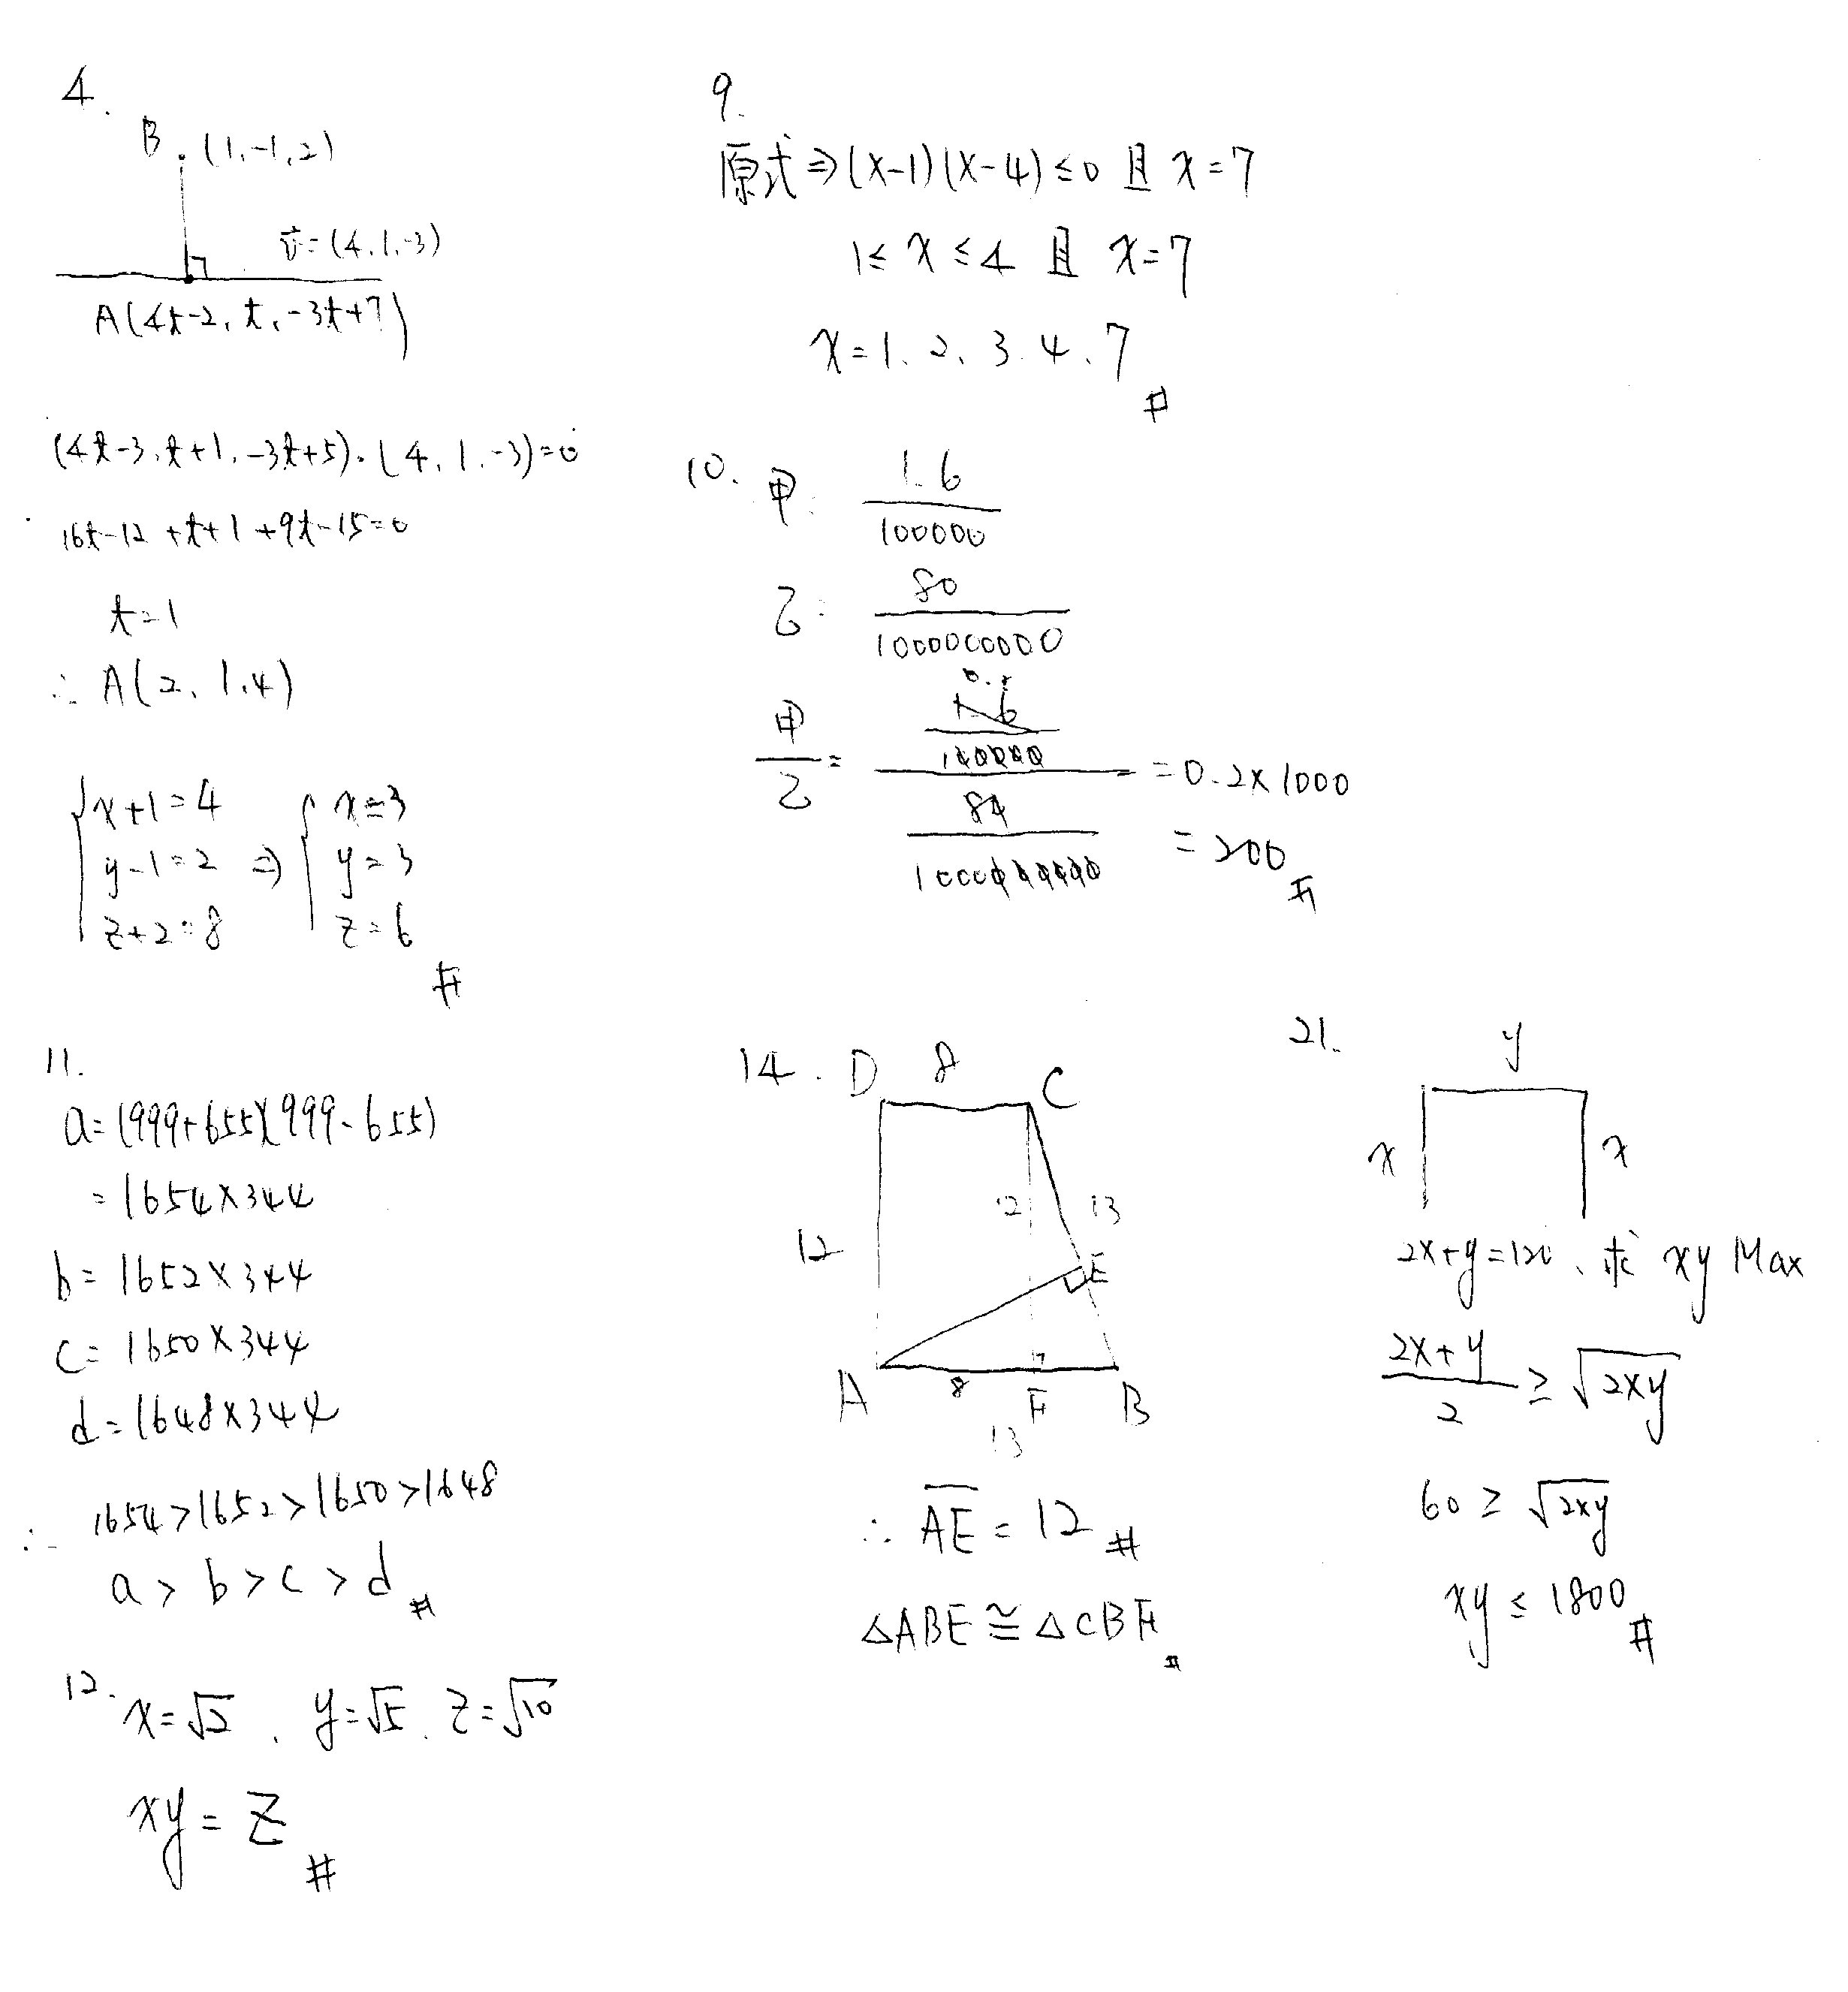 4.
B. (1,-1,2)
v⃗=(4,1,-3)
A(4t-2, t, -3t+7)
(4t-3, t+1, -3t+5)·(4, 1, -3)=0
16t-12+t+1+9t-15=0
t=1
∴ A(2, 1, 4)
x+1=4
y-1=2
z+2=8
⇒
x=3
y=3
z=6
#
9.
原式⇒(x-1)(x-4)≤0 且 x=7
1≤x≤4 且 x=7
x=1、2、3、4、7
#
10. 甲: 1.6/100000
乙: 80/1000000000
甲/乙 = (1.6/100000)/(80/1000000000) = 0.2×1000
0.2
=200 #
11.
a=(999+655)(999-655)
=1654×344
b=1652×344
c=1650×344
d=1648×344
∴ 1654>1652>1650>1648
a>b>c>d #
12. x=√2, y=√5, z=√10
xy=z
#
14. D 8 C
12
12 13
E
A 8 F B
13
∴ AE=12 #
△ABE≅△CBF #
21.
y
x x
2x+y=120、求 xy Max
(2x+y)/2 ≥ √2xy
60 ≥ √2xy
xy ≤ 1800 #